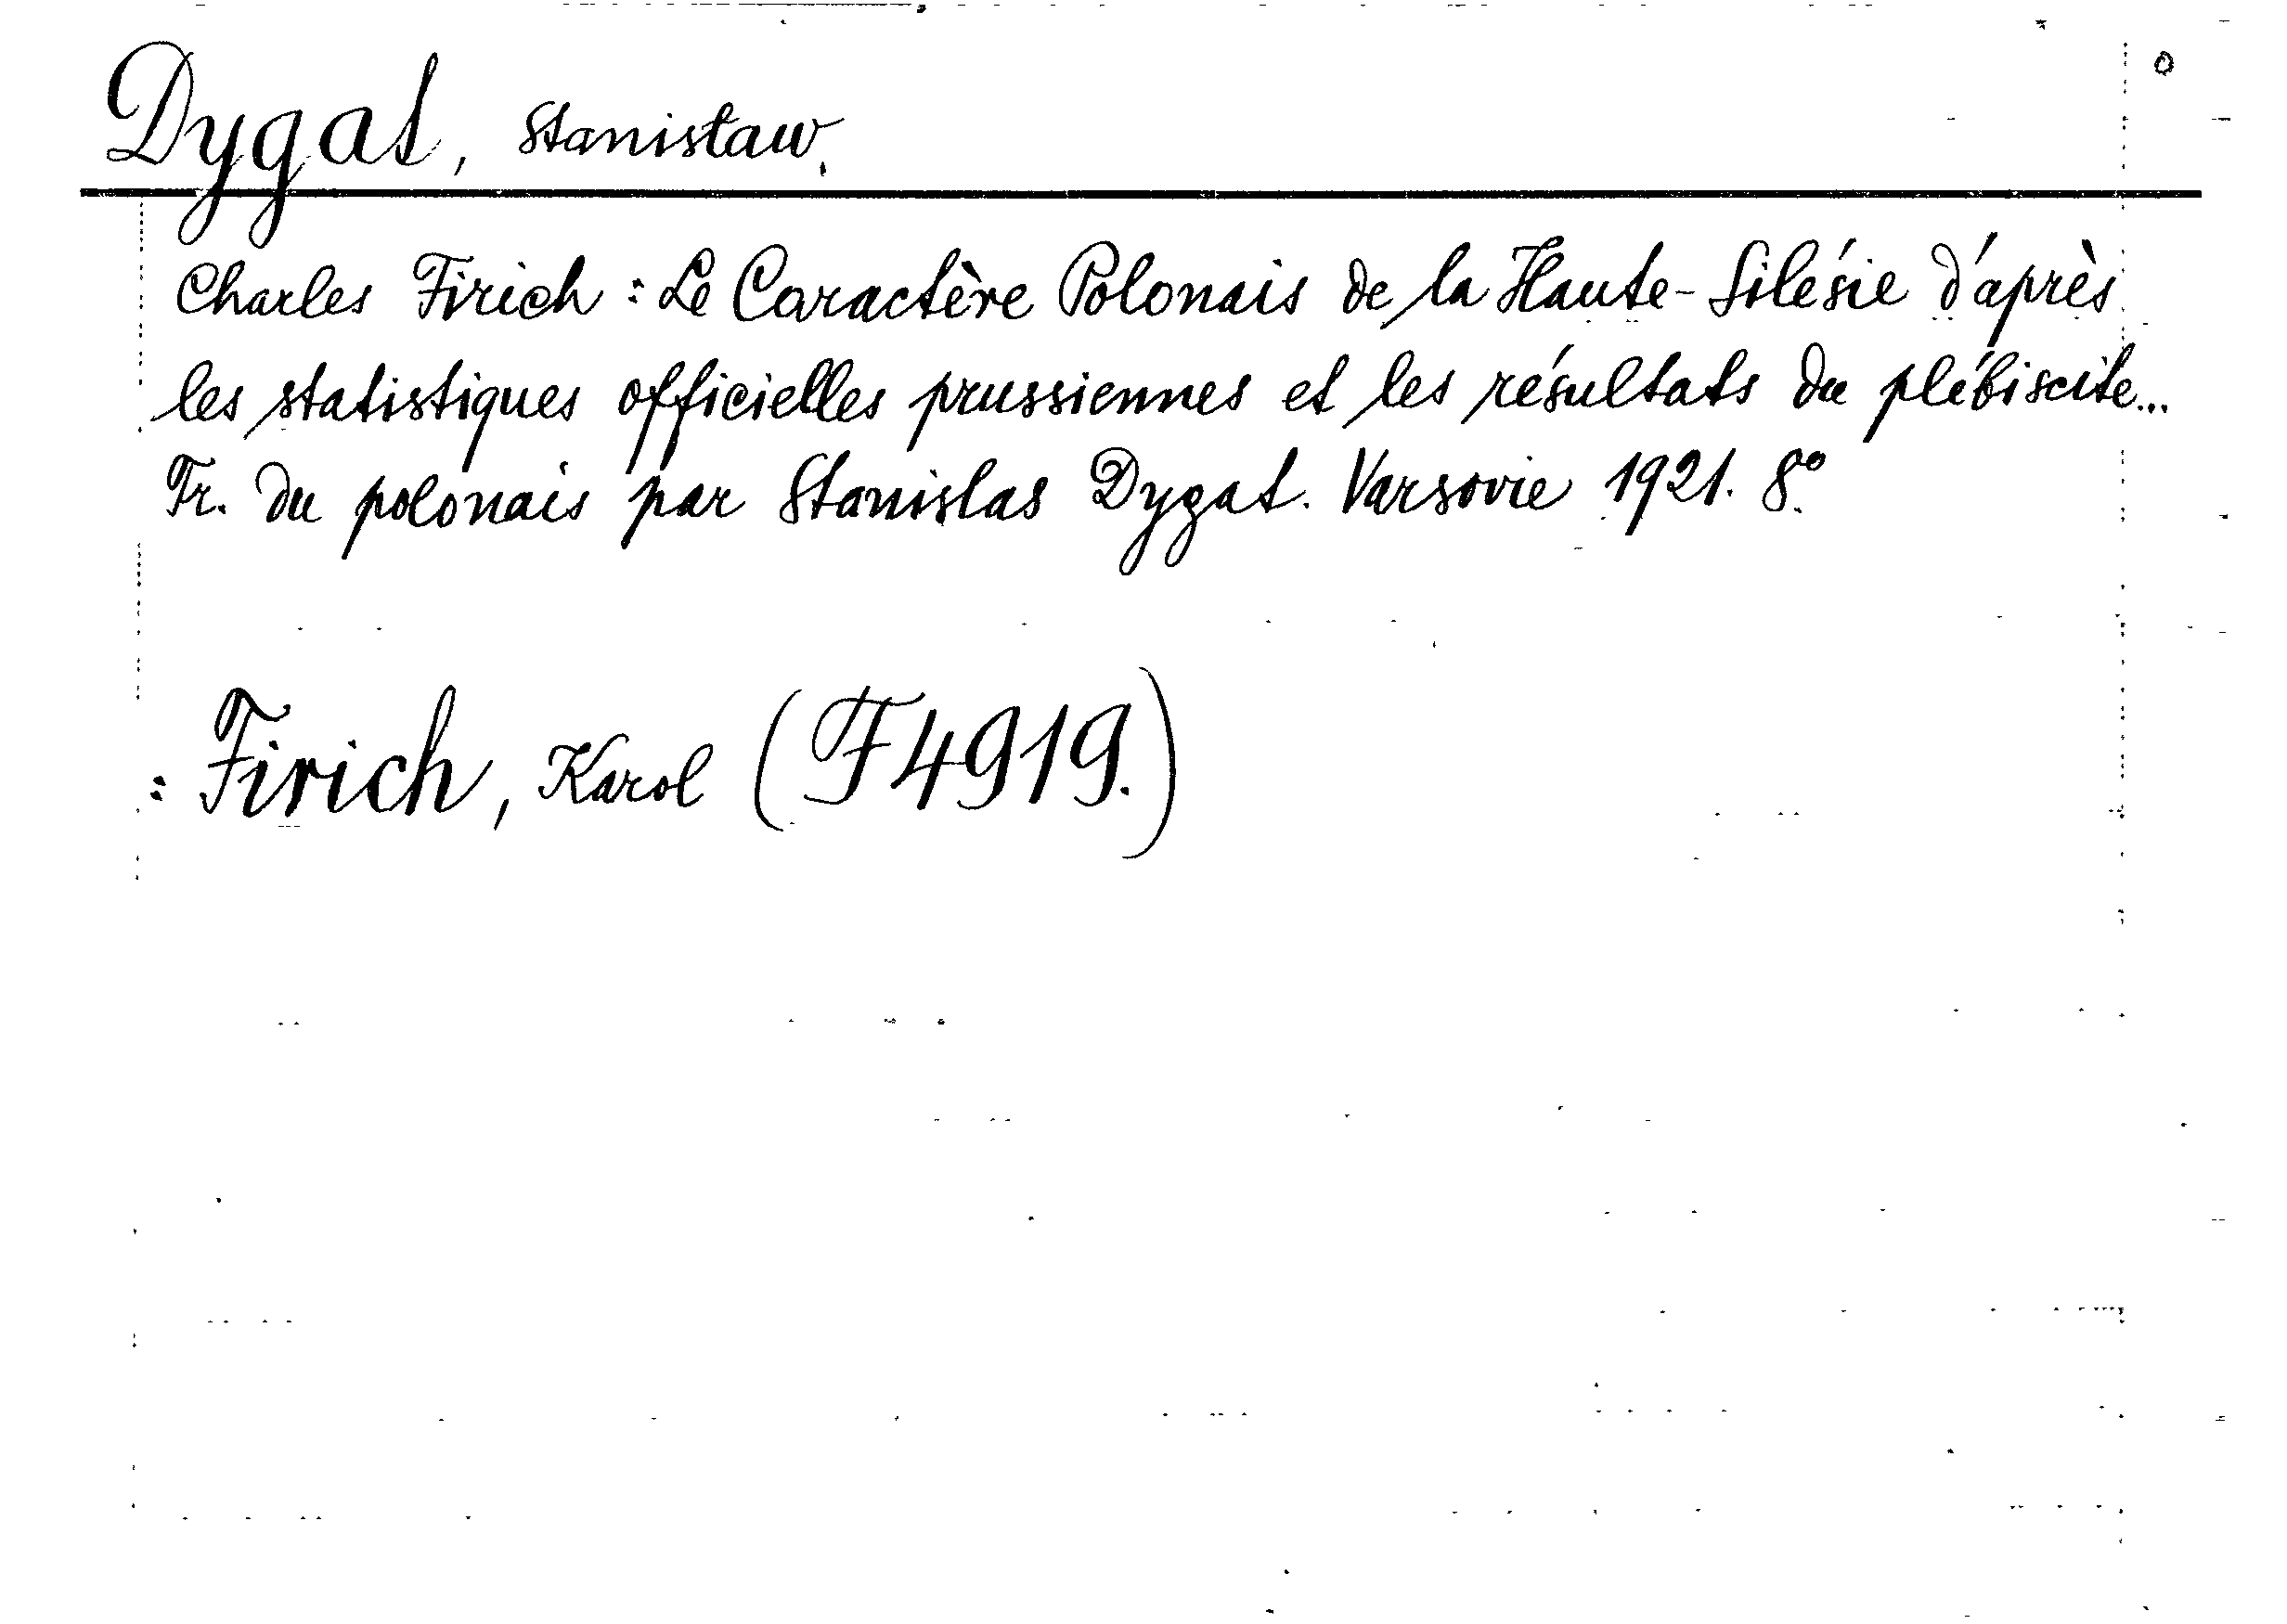 Dygat, Stanisław.
Charles Firich: Le Caractère Polonais de la Haute-Silésie d'après
les statistiques officielles prussiennes et les résultats du plébiscite...
Fr. du polonais par Stanislas Dygat. Varsovie 1921. 8°.
: Firich, Karol (F 4919.)